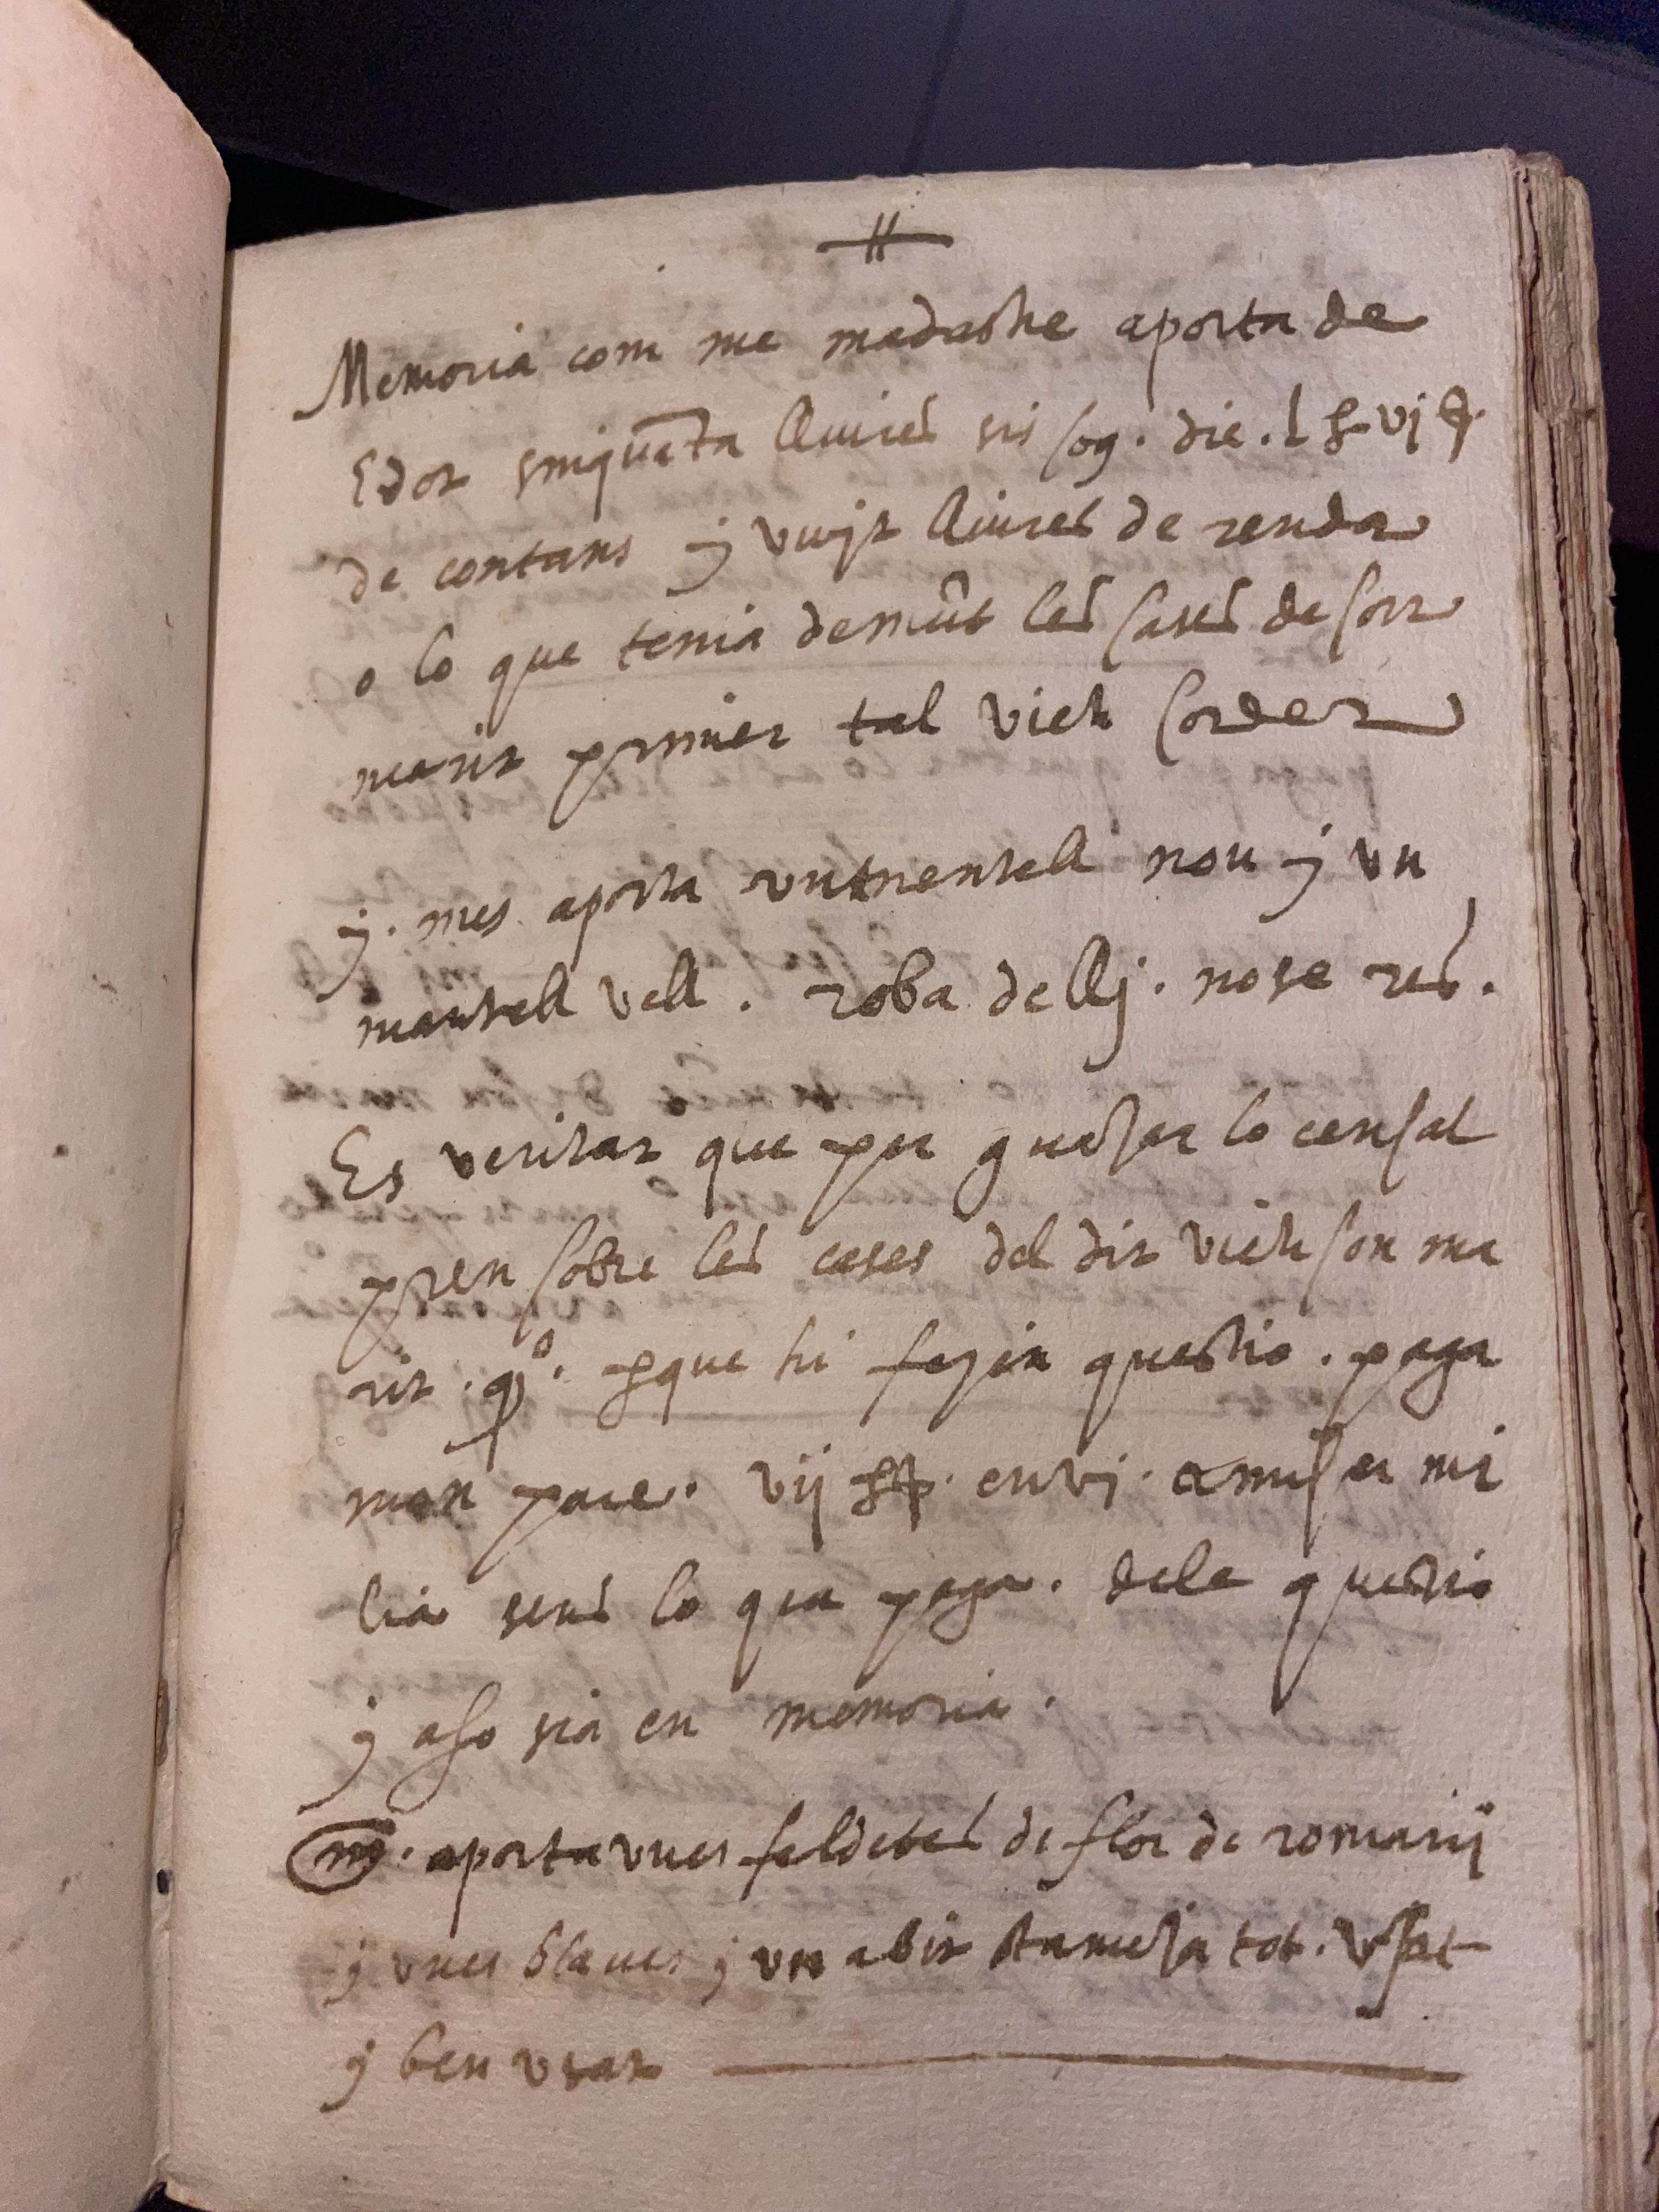 Memoria com me madastre aporta de
Edot sinquāta lliures sis sos. die. l ll vj s.
de contans y vuyt lliures de renda
o lo que tenia demūt les cases de son
marit primer tal Vich corder
y. mes aporta un mentell nou y vn
mantell vell. roba de llj. no se res.
Es veritat que per guasar lo censal
pren sobre les cases del dit vich son ma
rit. qº. perque hi fesin questio. paga
mon pare. vij en vj. a miser mi
lia sens lo que paga. dela questio
y aso sia en memoria.
mj. aporta vnes faldetes de flor de romanj
y vnes blaues y vn abit stamesa tot. vsat
y ben vsat